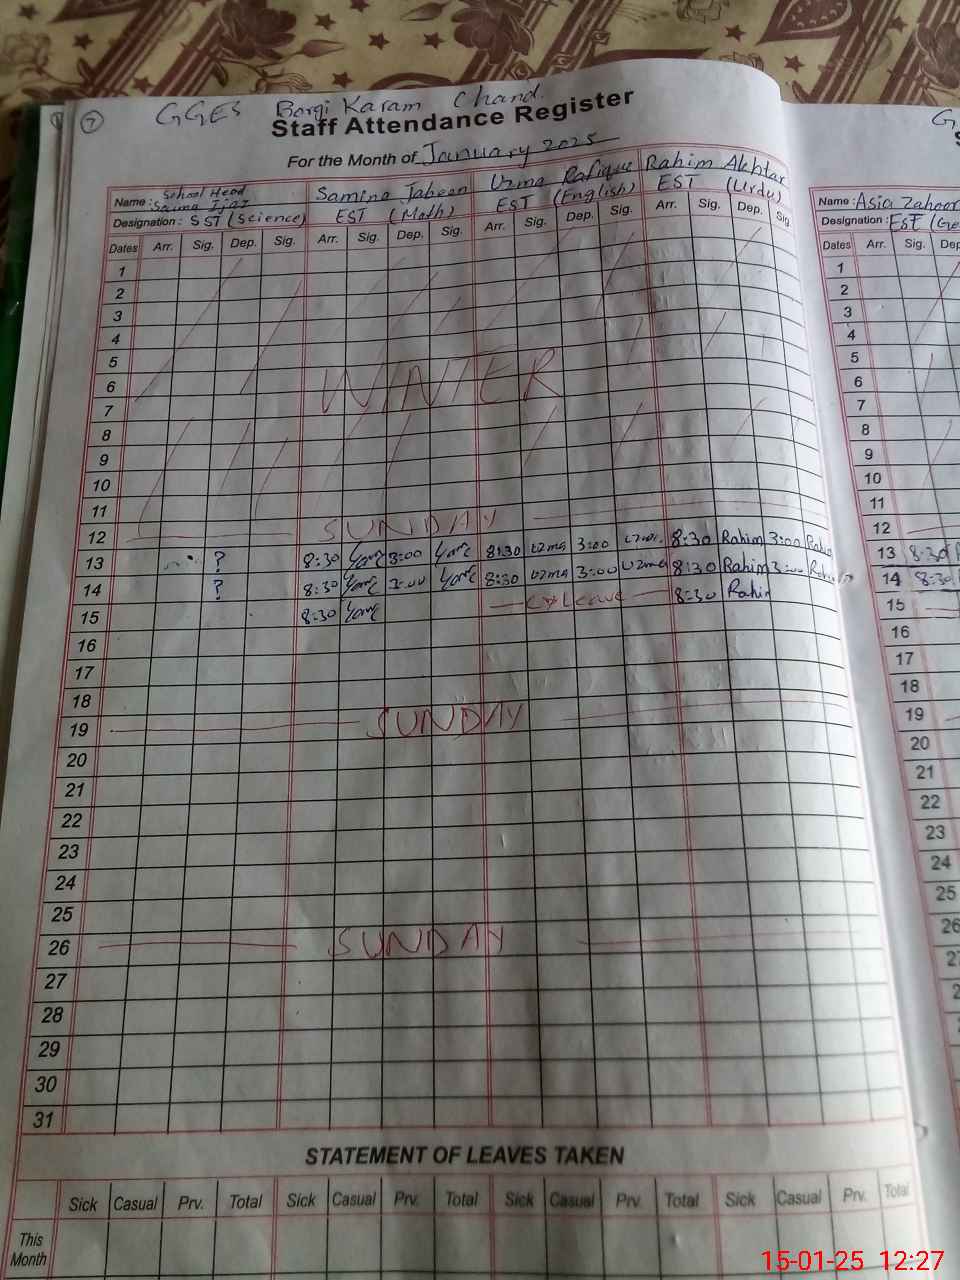 7 GGES Borgi Karam Chand.
Staff Attendance Register
For the Month of January 2025
Name: School Head Saima Ijaz Samina Jabeen Uzma Rafique Rahim Akhtar
Designation: SST (Science) EST (Math) EST (English) EST (Urdu)
Dates Arr. Sig. Dep. Sig. Arr. Sig. Dep. Sig. Arr. Sig. Dep. Sig. Arr. Sig. Dep. Sig.
1
2
3
4
5
6 WINTER
7
8
9
10
11
12 SUNDAY
13 ? 8:30 3:00 8:30 Uzma 3:00 Uzma 8:30 Rahim 3:00 Rahim
14 ? 8:30 3:00 8:30 Uzma 3:00 Uzma 8:30 Rahim 3:00 Rahim
15 8:30 Leave 8:30 Rahim
16
17
18
19 SUNDAY
20
21
22
23
24
25
26 SUNDAY
27
28
29
30
31
STATEMENT OF LEAVES TAKEN
Sick Casual Prv. Total Sick Casual Prv. Total Sick Casual Prv. Total Sick Casual Prv. Total
This
Month
G
Name: Asia Zahoor
Designation: EST
Dates Arr. Sig. Dep
1
2
3
4
5
6
7
8
9
10
11
12
13 8:30
14 8:30
15
16
17
18
19
20
21
22
23
24
25
26
27
15-01-25 12:27